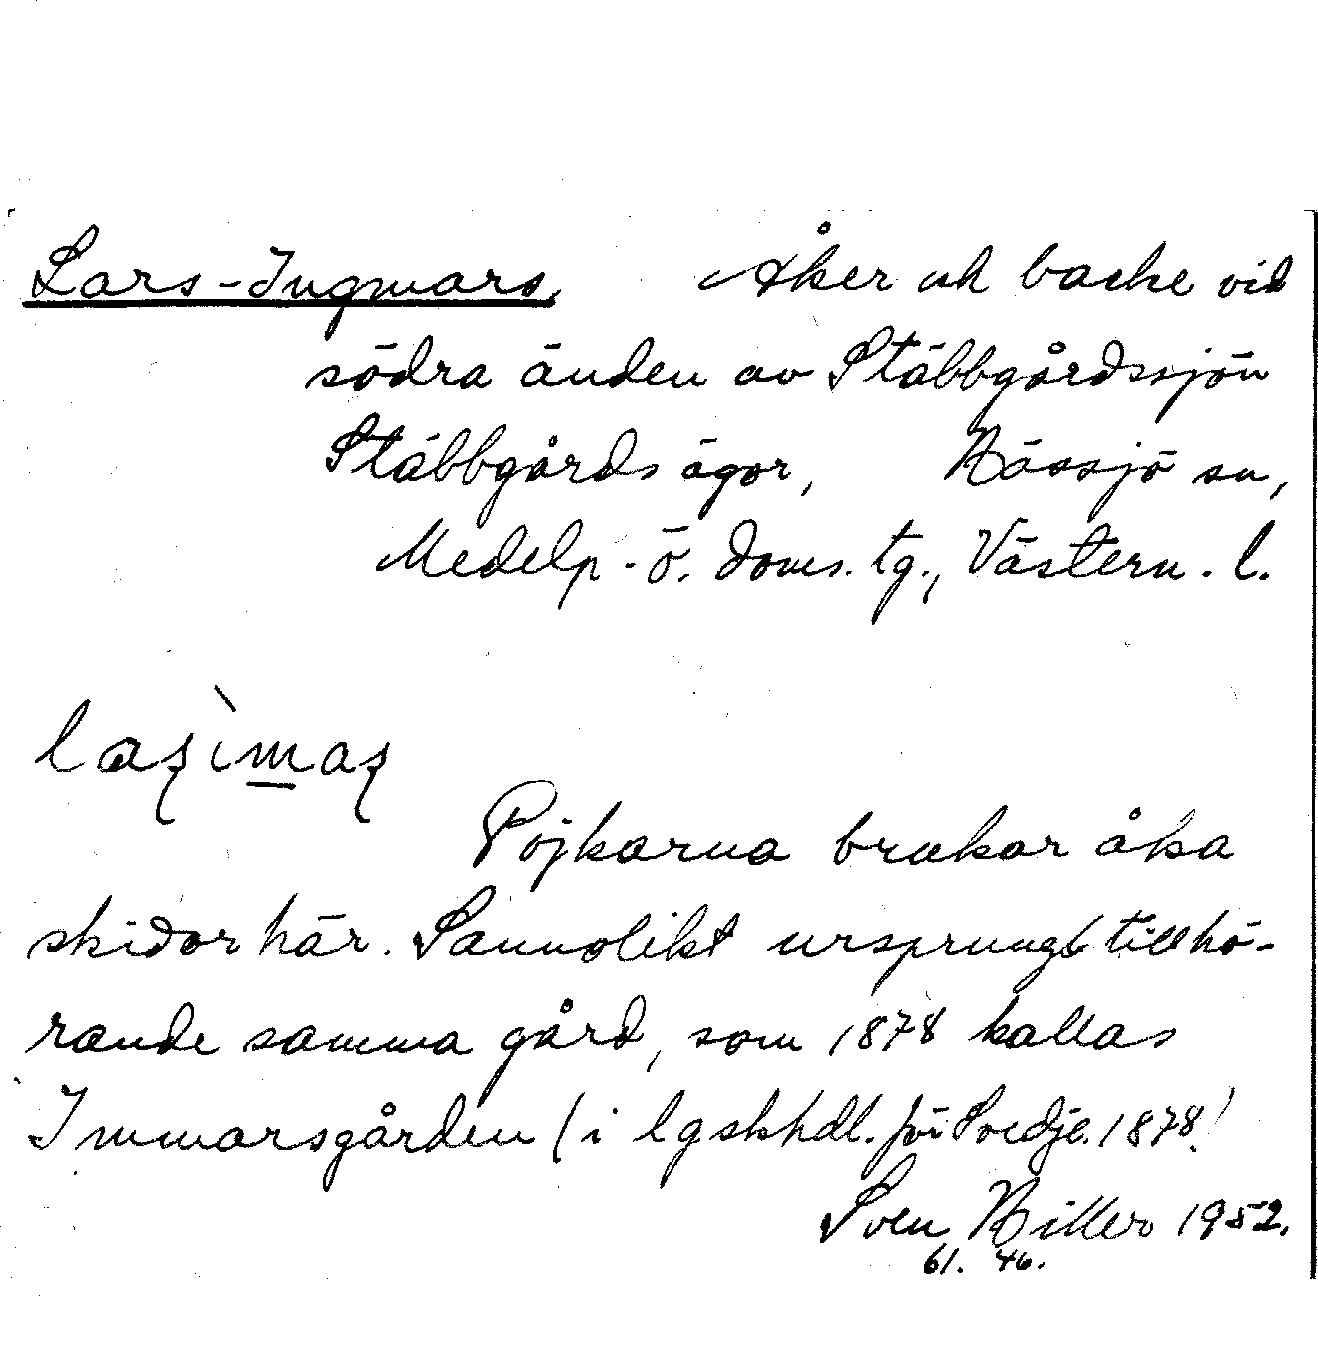 Lars-Ingmars, Åker och backe vid
södra änden av Stäbbgårdssjön
Stäbbgårds ägor, Hässjö sn,
Medelp. ö. doms. tg., Västern. l.
Pojkarna brukar åka
skidor här. Sannolikt ursprungl. tillhö-
rande samma gård, som 1878 kallas
Immarsgården (i lgskhdl. för Svedje. 1878!
Sven Hillers 1952.
61. 46.